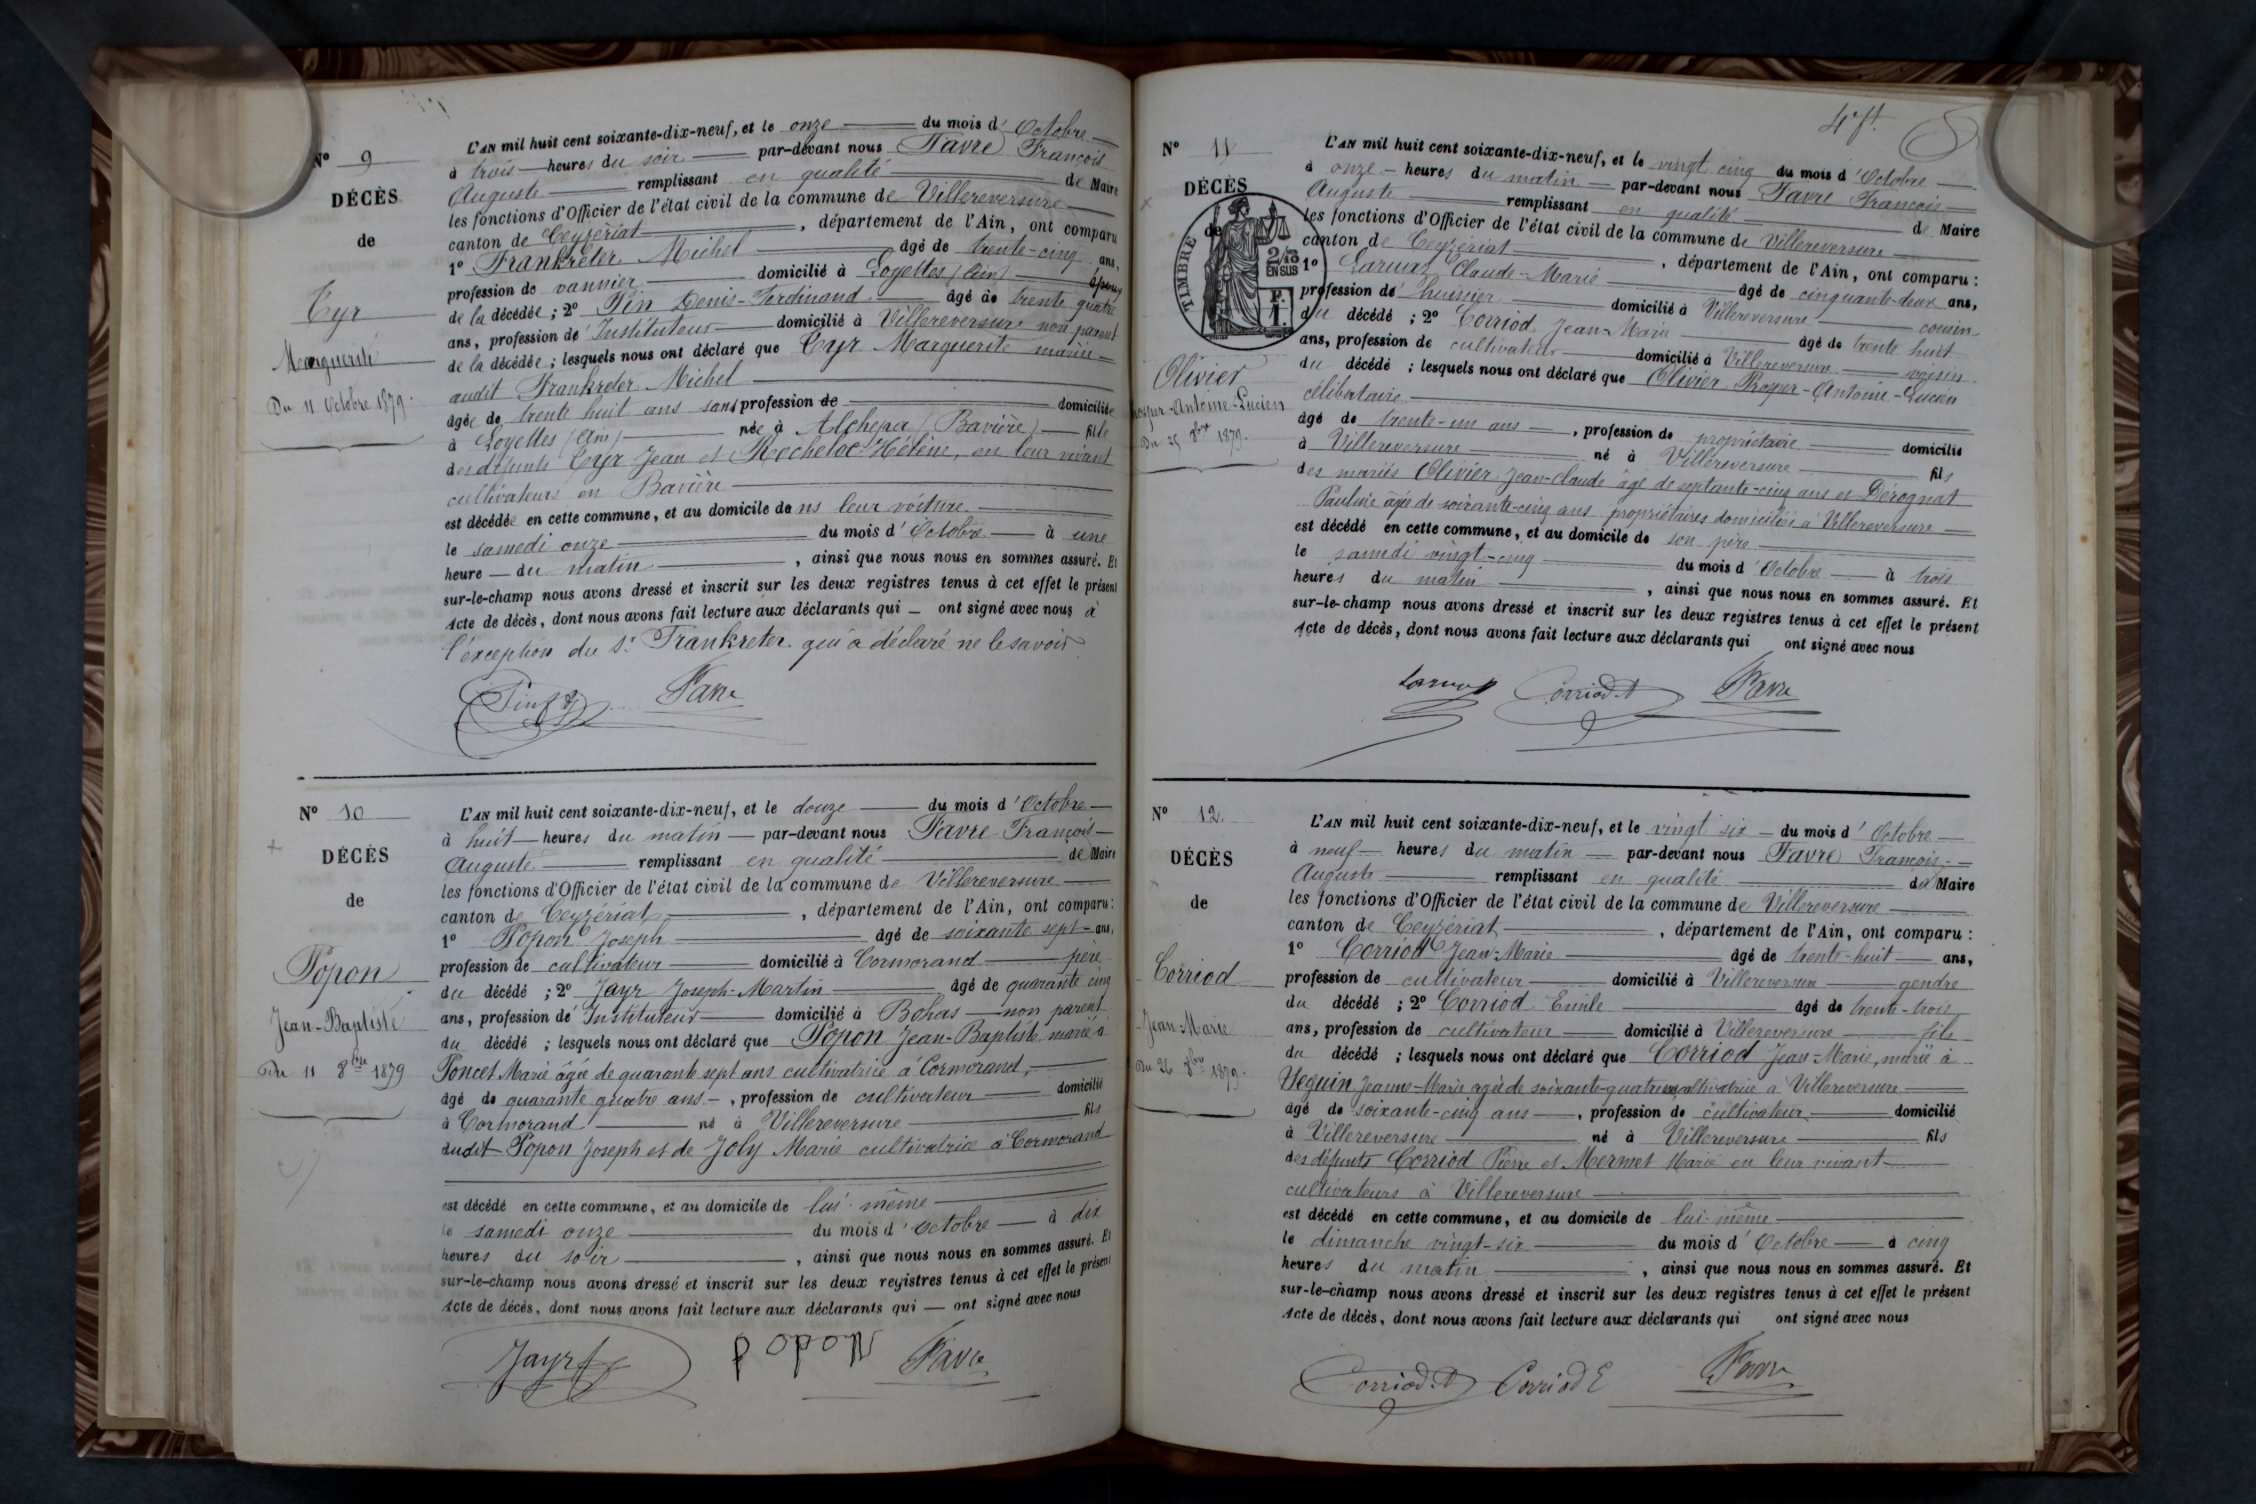 N° 9
DÉCÈS
de
Cyr
Marguerite
Du 11 Octobre 1879.
L'AN mil huit cent soixante-dix-neuf, et le onze du mois d'Octobre
à trois heures du soir par-devant nous Favre François
Auguste remplissant en qualité de Maire
les fonctions d'Officier de l'état civil de la commune de Villereversure
canton de Ceyzériat, département de l'Ain, ont comparu
1° Frankreter Michel âgé de trente-cinq ans,
profession de vannier domicilié à Loyettes (Ain) époux
de la décédée ; 2° Pin Denis-Ferdinand âgé de trente quatre
ans, profession de Instituteur domicilié à Villereversure non parent
de la décédée ; lesquels nous ont déclaré que Cyr Marguerite mariée
audit Frankreter Michel
âgée de trente huit ans sans profession de domiciliée
à Loyettes (Ain) née à (Bavière) fille
des défunts Cyr Jean et Hélène, en leur vivant
cultivateurs en Bavière
est décédée en cette commune, et au domicile dans leur voiture
le samedi onze du mois d'Octobre à une
heure du matin, ainsi que nous nous en sommes assuré. Et
sur-le-champ nous avons dressé et inscrit sur les deux registres tenus à cet effet le présent
Acte de décès, dont nous avons fait lecture aux déclarants qui ont signé avec nous à
l'exception du sr Frankreter qui a déclaré ne le savoir
Pin Favre
N° 10
DÉCÈS
de
Popon
Jean-Baptiste
Du 11 8bre 1879
L'AN mil huit cent soixante-dix-neuf, et le douze du mois d'Octobre
à huit heures du matin par-devant nous Favre François
Auguste remplissant en qualité de Maire
les fonctions d'Officier de l'état civil de la commune de Villereversure
canton de Ceyzériat, département de l'Ain, ont comparu :
1° Popon Joseph âgé de soixante sept ans,
profession de cultivateur domicilié à Cormorand père
du décédé ; 2° Jayr Joseph-Martin âgé de quarante cinq
ans, profession de Instituteur domicilié à Bohas non parent
du décédé ; lesquels nous ont déclaré que Popon Jean-Baptiste marié à
Poncet Marie âgée de quarante sept ans cultivatrice à Cormorand,
âgé de quarante quatre ans, profession de cultivateur domicilié
à Cormorand né à Villereversure fils
dudit Popon Joseph et de Joly Marie cultivatrice à Cormorand
est décédé en cette commune, et au domicile de lui-même
le samedi onze du mois d'Octobre à dix
heures du soir, ainsi que nous nous en sommes assuré. Et
sur-le-champ nous avons dressé et inscrit sur les deux registres tenus à cet effet le présent
Acte de décès, dont nous avons fait lecture aux déclarants qui ont signé avec nous
Jayr popon Favre
4e ft.
N° 11
DÉCÈS
de
TIMBRE
2/10
EN SUS
F.
1.
Olivier
Prosper-Antoine-Lucien
Du 25 8bre 1879.
L'AN mil huit cent soixante-dix-neuf, et le vingt cinq du mois d'Octobre
à onze heures du matin par-devant nous Favre François
Auguste remplissant en qualité de Maire
les fonctions d'Officier de l'état civil de la commune de Villereversure
canton de Ceyzériat, département de l'Ain, ont comparu :
1° Larmaz Claude-Marie âgé de cinquante-deux ans,
profession de huissier domicilié à Villereversure cousin
du décédé ; 2° Corriod Jean-Marie âgé de trente huit
ans, profession de cultivateur domicilié à Villereversure voisin
du décédé ; lesquels nous ont déclaré que Olivier Prosper-Antoine-Lucien
célibataire
âgé de trente-un ans, profession de propriétaire domicilié
à Villereversure né à Villereversure fils
des mariés Olivier Jean-Claude âgé de septante-cinq ans et Dérognat
Pauline âgée de soixante-cinq ans propriétaires domiciliés à Villereversure
est décédé en cette commune, et au domicile de son père
le samedi vingt-cinq du mois d'Octobre à trois
heures du matin, ainsi que nous nous en sommes assuré. Et
sur-le-champ nous avons dressé et inscrit sur les deux registres tenus à cet effet le présent
Acte de décès, dont nous avons fait lecture aux déclarants qui ont signé avec nous
Corriod Favre
N° 12
DÉCÈS
de
Corriod
Jean-Marie
Du 26 8bre 1879.
L'AN mil huit cent soixante-dix-neuf, et le vingt six du mois d'Octobre
à neuf heures du matin par-devant nous Favre François
Auguste remplissant en qualité de Maire
les fonctions d'Officier de l'état civil de la commune de Villereversure
canton de Ceyzériat, département de l'Ain, ont comparu :
1° Corriod Jean-Marie âgé de trente-huit ans,
profession de cultivateur domicilié à Villereversure gendre
du décédé ; 2° Corriod Emile âgé de trente-trois
ans, profession de cultivateur domicilié à Villereversure fils
du décédé ; lesquels nous ont déclaré que Corriod Jean-Marie, marié à
Seguin Jeanne-Marie âgée de soixante-quatre ans cultivatrice à Villereversure
âgé de soixante-cinq ans, profession de cultivateur domicilié
à Villereversure né à Villereversure fils
des défunts Corriod Pierre et Mermet Marie en leur vivant
cultivateurs à Villereversure
est décédé en cette commune, et au domicile de lui-même
le dimanche vingt-six du mois d'Octobre à cinq
heures du matin, ainsi que nous nous en sommes assuré. Et
sur-le-champ nous avons dressé et inscrit sur les deux registres tenus à cet effet le présent
Acte de décès, dont nous avons fait lecture aux déclarants qui ont signé avec nous
Corriod Corriod E Favre